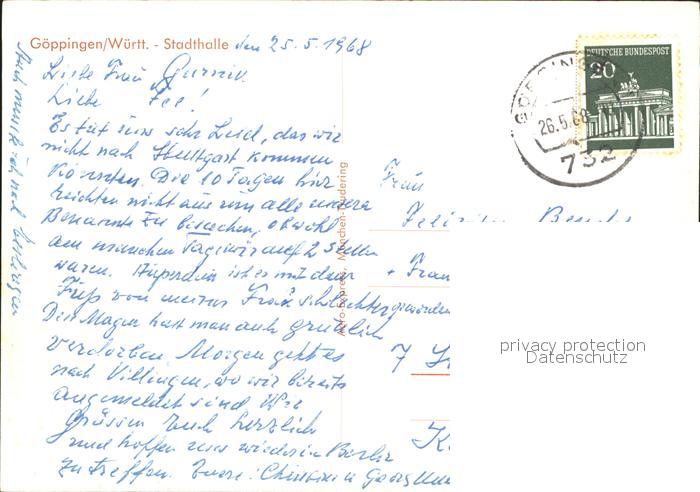 Göppingen/Württ. - Stadthalle den 25.5.1968
Liebe Frau
Liebe Fee!
Es tut uns sehr Leid, das wir
nicht nach Stuttgart kommen
konnten. Die 10 Tagen hier
reichten nicht aus um alle unsere
Bekannte zu besuchen, obwohl
an manchen Tag wir auf 2 Stellen
waren. Ausserdem ist es mit dem
Fuss von meiner Frau schlechter geworden
Den Magen hat man auch gründlich
verdorben. Morgen geht es
nach Villingen, wo wir bereits
angemeldet sind. Wir
grüssen Euch herzlich
und hoffen uns wieder in Berlin
zu treffen. Eure: Christina u Georg
Auch musste ich nach
Auto-Express, München-Trudering
DEUTSCHE BUNDESPOST
20
26.5.68
732
Frau
+ Frau
7
privacy protection
Datenschutz